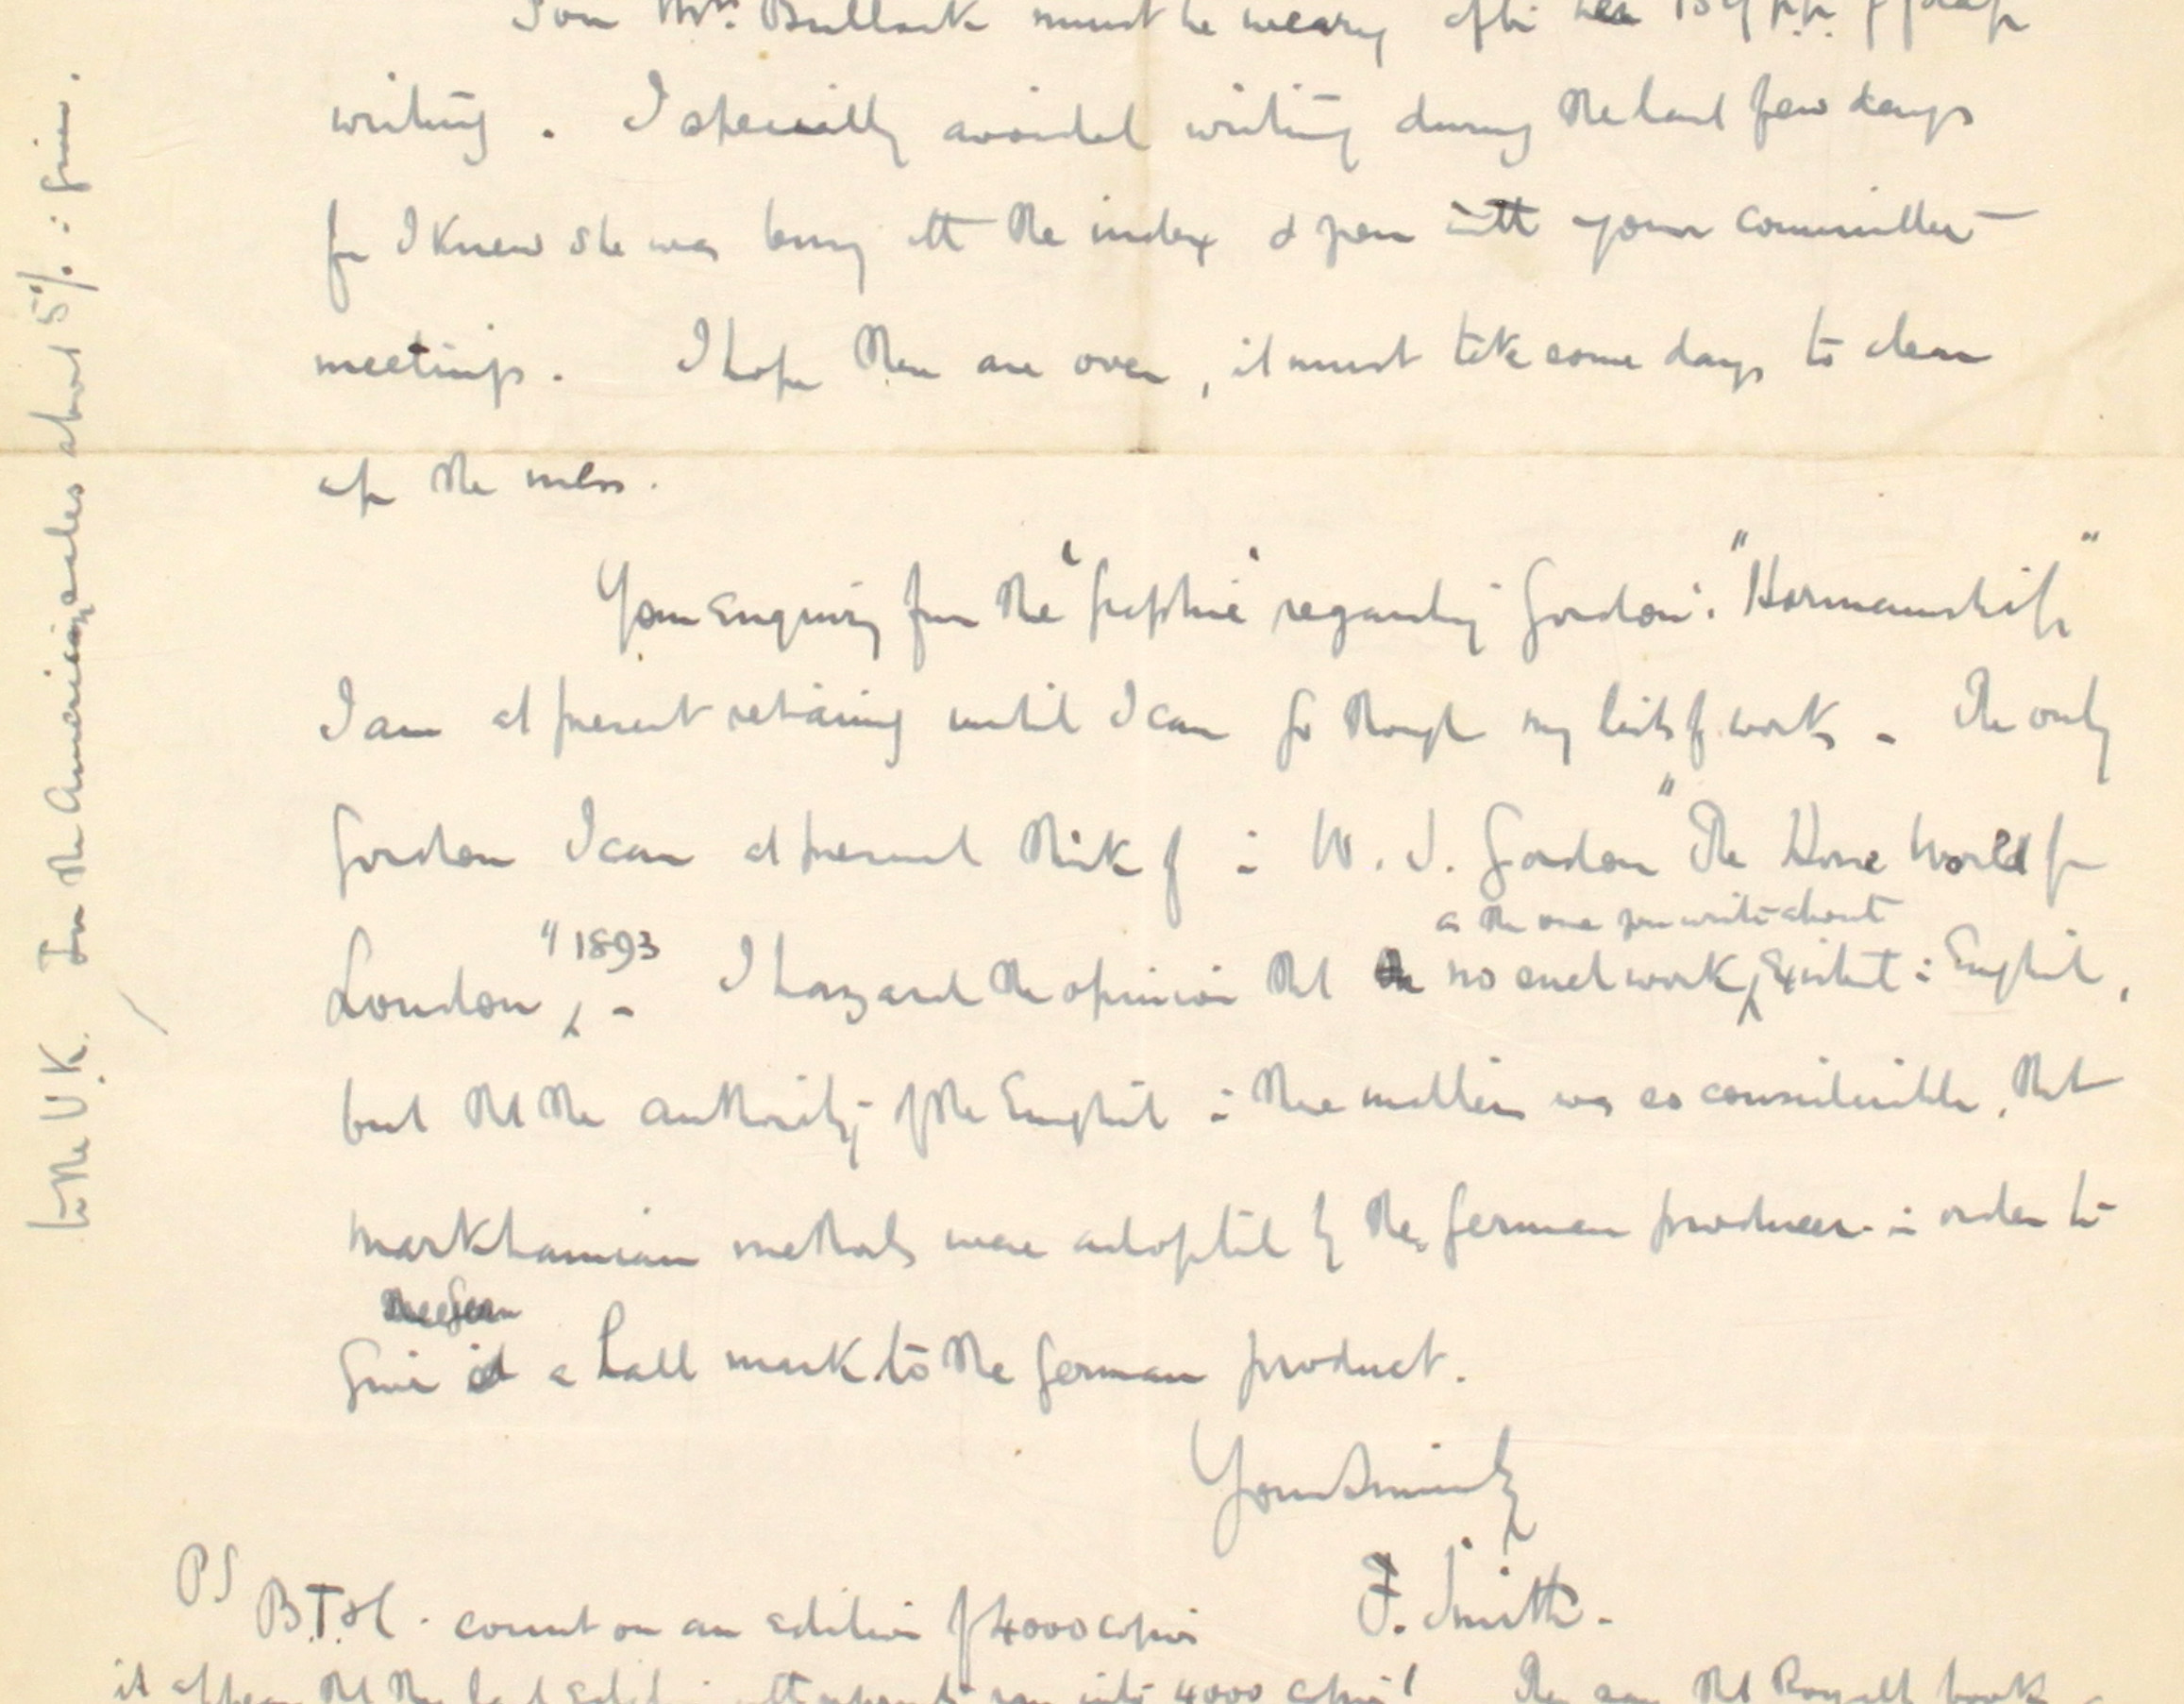 Poor Mrs. Bullock must be weary after her 159 pp. of proof
writing. I specially avoided writing during the last few days
for I knew she was busy with the index & you with your committee
meetings. I hope these are over, it must take some days to clean
up the mess.
Your enquiry from the "Graphic" regarding Gordon's "Horsemanship"
I am at present retaining until I can go through my lists of works. The only
Gordon I can at present think of is W. J. Gordon "The Horse World of
London" 1893. I hazard the opinion that no such work
as the one you write about
exists in English,
but that the authority of the English in these matters was so considerable, that
Markhamian methods were adopted by the German producers in order to
give a hall mark to the German product.
Yours sincerely
F. Smith.
PS B.T. & C. count on an edition of 4000 copies
it appears that the last edition apparently ran into 4000 copies! They say that Royalty books
to the U.K. In the American sales about 5% is given.